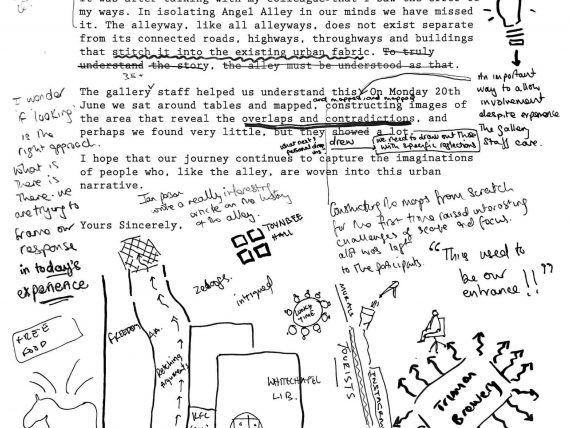 my ways. In isolating Angel Alley in our minds we have missed
it. The alleyway, like all alleyways, does not exist separate
from its connected roads, highways, throughways and buildings
that stitch it into the existing urban fabric. To truly
understand the story, the alley must be understood as that.
The gallery staff helped us understand this. On Monday 20th
and mapped, and mapped
June we sat around tables and mapped, constructing images of
the area that reveal the overlaps and contradictions, and
perhaps we found very little, but they showed a lot.
drew
we need to draw out these
with specific reflections
I hope that our journey continues to capture the imaginations
of people who, like the alley, are woven into this urban
narrative.
Yours Sincerely,
I wonder
if 'looking'
is the
right approach.
What is
There is
There. we
are trying to
frame our
response
in today's
experience
An important
way to allow
involvement
despite experience
The gallery
Staff care.
wrote a really interesting
article on the history
of the alley.
TOYNBEE
HALL
Constructing the maps from scratch
for the first time raised interesting
challenges of scope and focus.
to the participants.
"This used to
be our
entrance!!"
intrigued
LUNCH
TIME
MURALS
TOURISTS
INSTAGRAM
FREE
FOOD
WHITECHAPEL
LIB.
KFC
Truman
Brewery